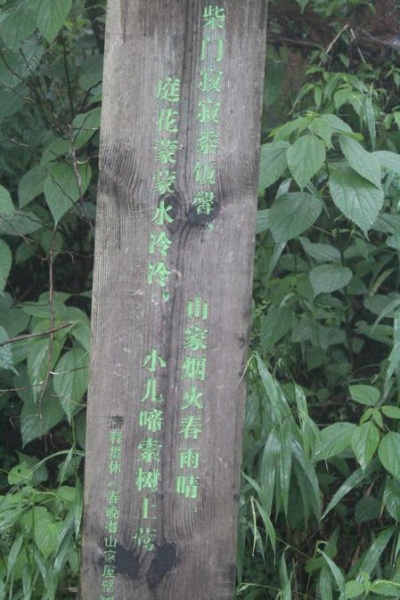 柴门寂寂黍饭馨,
山家烟火春雨晴
庭花蒙蒙水冷冷,
小儿啼索树上莺
唐 释贯休《春晚书山家屋壁》